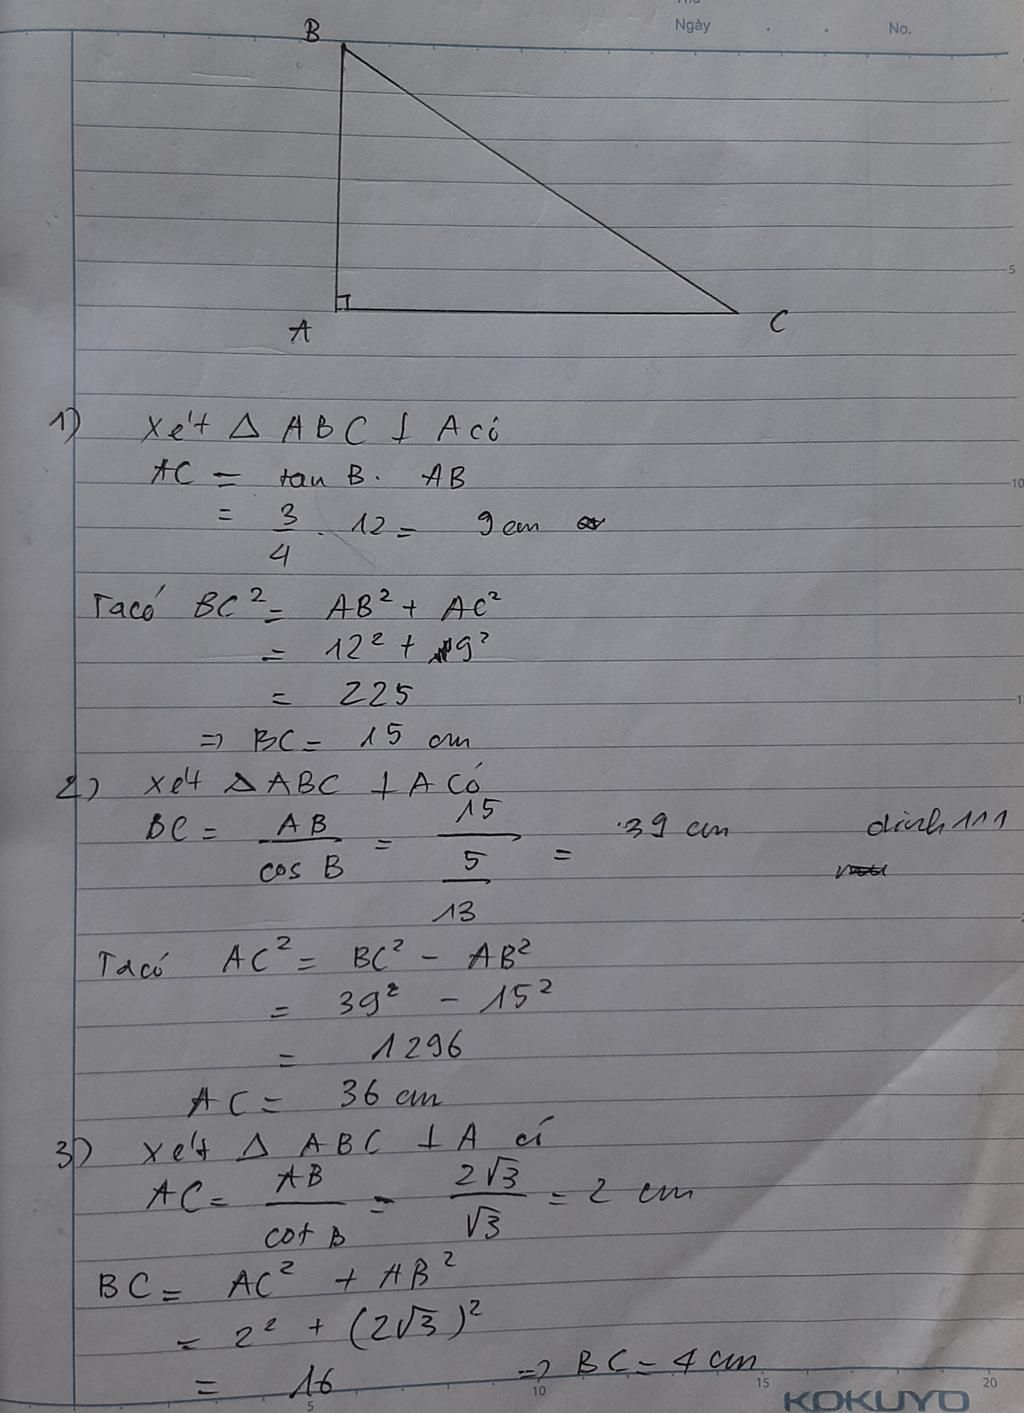 Thứ
Ngày . . No.
B
5
A
C
1) Xét Δ ABC ⊥ A có
AC = tan B . AB
10
= 3/4 . 12 = 9 cm
Ta có BC² = AB² + AC²
= 12² + 9²
= 225
⇒ BC = 15 cm
2) Xét Δ ABC ⊥ A có
BC = AB / cos B = 15 / (5/13) = 39 cm
Ta có AC² = BC² - AB²
= 39² - 15²
= 1296
AC = 36 cm
3) Xét Δ ABC ⊥ A cí
AC = AB / cot B = 2√3 / √3 = 2 cm
BC = AC² + AB²
= 2² + (2√3)²
= 16 ⇒ BC = 4 cm
5 10 15 20
KOKUYO